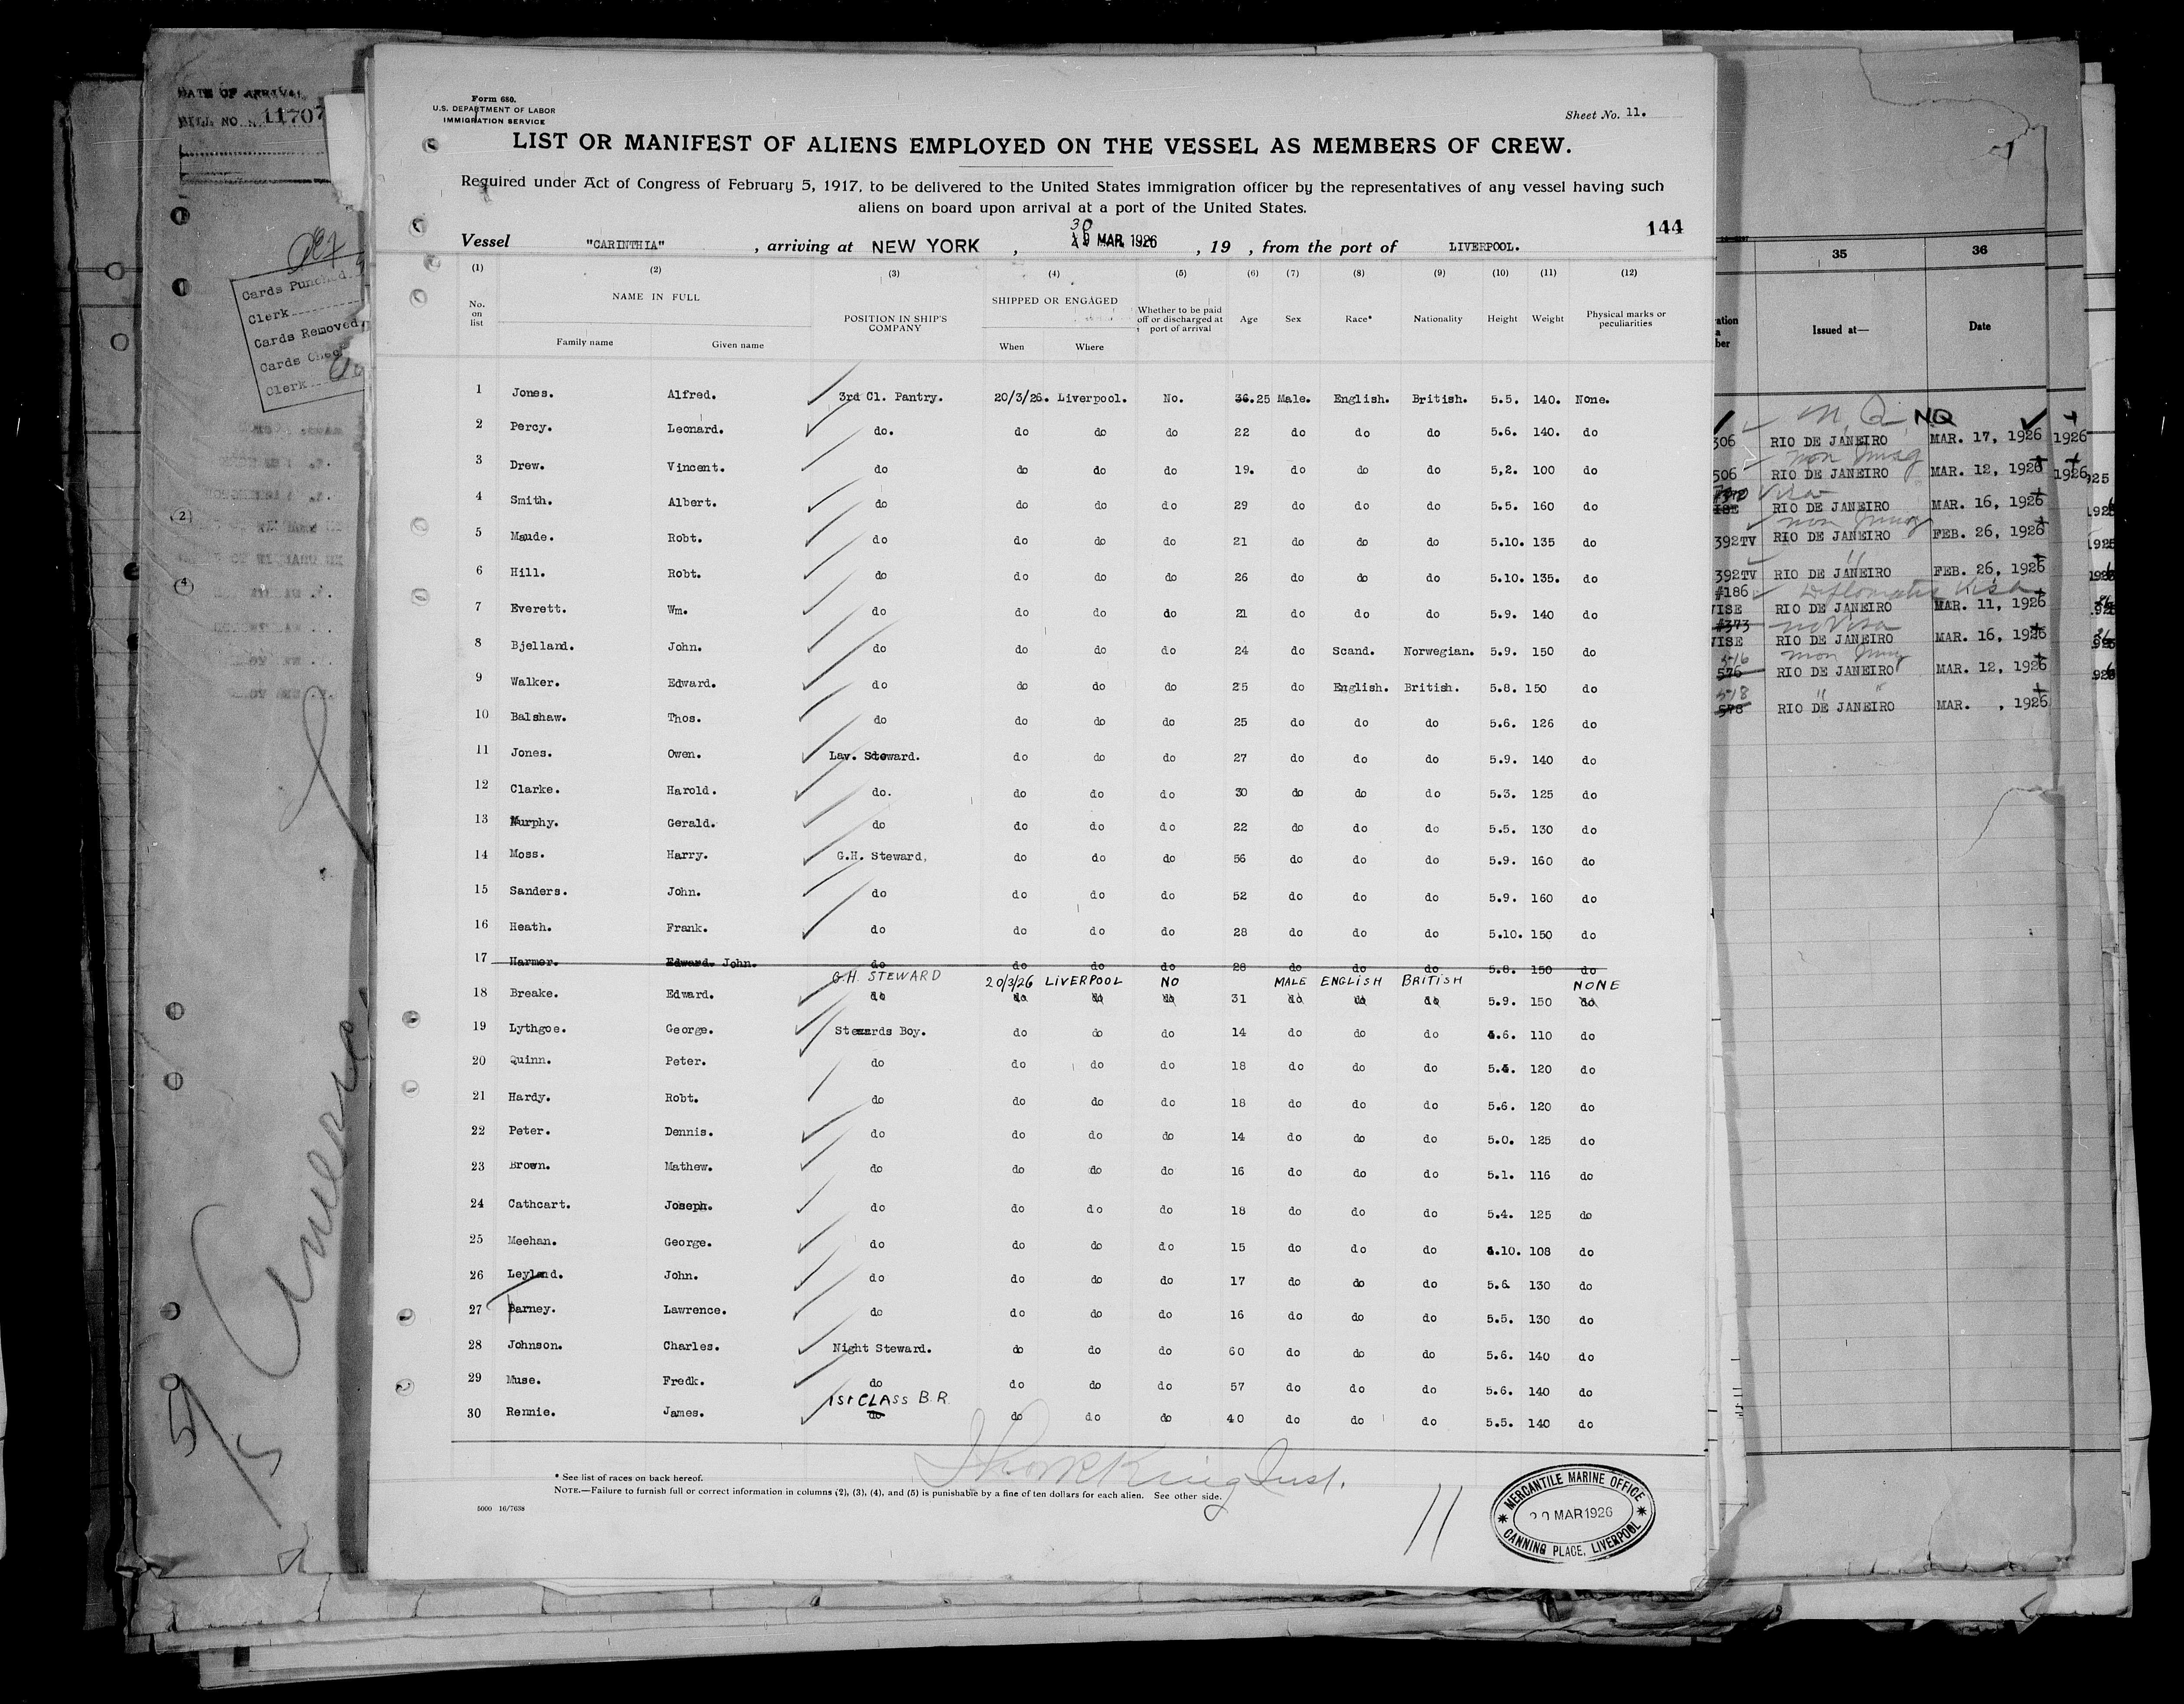 Form 680.
U.S. DEPARTMENT OF LABOR
IMMIGRATION SERVICE
Sheet No. 11.
LIST OR MANIFEST OF ALIENS EMPLOYED ON THE VESSEL AS MEMBERS OF CREW.
Required under Act of Congress of February 5, 1917, to be delivered to the United States immigration officer by the representatives of any vessel having such
aliens on board upon arrival at a port of the United States.
144
30
Vessel "CARINTHIA" , arriving at NEW YORK , MAR 1926 , 19 , from the port of LIVERPOOL.
(1) (2) (3) (4) (5) (6) (7) (8) (9) (10) (11) (12)
No. on list NAME IN FULL Family name Given name POSITION IN SHIP'S COMPANY SHIPPED OR ENGAGED When Where Whether to be paid off or discharged at port of arrival Age Sex Race* Nationality Height Weight Physical marks or peculiarities
1 Jones. Alfred. 3rd Cl. Pantry. 20/3/26. Liverpool. No. 36.25 Male. English. British. 5.5. 140. None.
2 Percy. Leonard. do. do do do 22 do do do 5.6. 140. do
3 Drew. Vincent. do do do do 19. do do do 5,2. 100 do
4 Smith. Albert. do do do do 29 do do do 5.5. 160 do
5 Maude. Robt. do do do do 21 do do do 5.10. 135 do
6 Hill. Robt. do do do do 26 do do do 5.10. 135. do
7 Everett. Wm. do do do do 21 do do do 5.9. 140 do
8 Bjelland. John. do do do do 24 do Scand. Norwegian. 5.9. 150 do
9 Walker. Edward. do do do do 25 do English. British. 5.8. 150 do
10 Balshaw. Thos. do do do do 25 do do do 5.6. 126 do
11 Jones. Owen. Lav. Steward. do do do 27 do do do 5.9. 140 do
12 Clarke. Harold. do. do do do 30 do do do 5.3. 125 do
13 Murphy. Gerald. do do do do 22 do do do 5.5. 130 do
14 Moss. Harry. G.H. Steward, do do do 56 do do do 5.9. 160 do
15 Sanders. John. do do do do 52 do do do 5.9. 160 do
16 Heath. Frank. do do do do 28 do do do 5.10. 150 do
17 Harmer. Edward. John. do do do do 28 do do do 5.8. 150 do
G.H. STEWARD 20/3/26 LIVERPOOL NO MALE ENGLISH BRITISH NONE
18 Breake. Edward. do do do do 31 do do do 5.9. 150 do
19 Lythgoe. George. Stewards Boy. do do do 14 do do do 4.6. 110 do
20 Quinn. Peter. do do do do 18 do do do 5.4. 120 do
21 Hardy. Robt. do do do do 18 do do do 5.6. 120 do
22 Peter. Dennis. do do do do 14 do do do 5.0. 125 do
23 Brown. Mathew. do do do do 16 do do do 5.1. 116 do
24 Cathcart. Joseph. do do do do 18 do do do 5.4. 125 do
25 Meehan. George. do do do do 15 do do do 4.10. 108 do
26 Leyland. John. do do do do 17 do do do 5.6 130 do
27 Barney. Lawrence. do do do do 16 do do do 5.5. 130 do
28 Johnson. Charles. Night Steward. do do do 60 do do do 5.6. 140 do
29 Muse. Fredk. do do do do 57 do do do 5.6. 140 do
1st CLASS B.R.
30 Rennie. James. do do do do 40 do do do 5.5. 140 do
* See list of races on back hereof.
NOTE.—Failure to furnish full or correct information in columns (2), (3), (4), and (5) is punishable by a fine of ten dollars for each alien. See other side.
5000 16/7638
11
MERCANTILE MARINE OFFICE
20 MAR 1926
CANNING PLACE, LIVERPOOL
DATE OF ARRIVAL
BILL NO. 11707
Cards Punched
Clerk
Cards Removed
Cards Chec
Clerk
2
4
35 36
Issued at— Date
NQ
306 RIO DE JANEIRO MAR. 17, 1926 1926
506 RIO DE JANEIRO MAR. 12, 1926 1926
RIO DE JANEIRO MAR. 16, 1926
392TV RIO DE JANEIRO FEB. 26, 1926
392TV RIO DE JANEIRO FEB. 26, 1926
#186 Diplomatic Visa
VISE RIO DE JANEIRO MAR. 11, 1926
#373 no Visa
VISE RIO DE JANEIRO MAR. 16, 1926
576 RIO DE JANEIRO MAR. 12, 1926
578 RIO DE JANEIRO MAR. , 1926